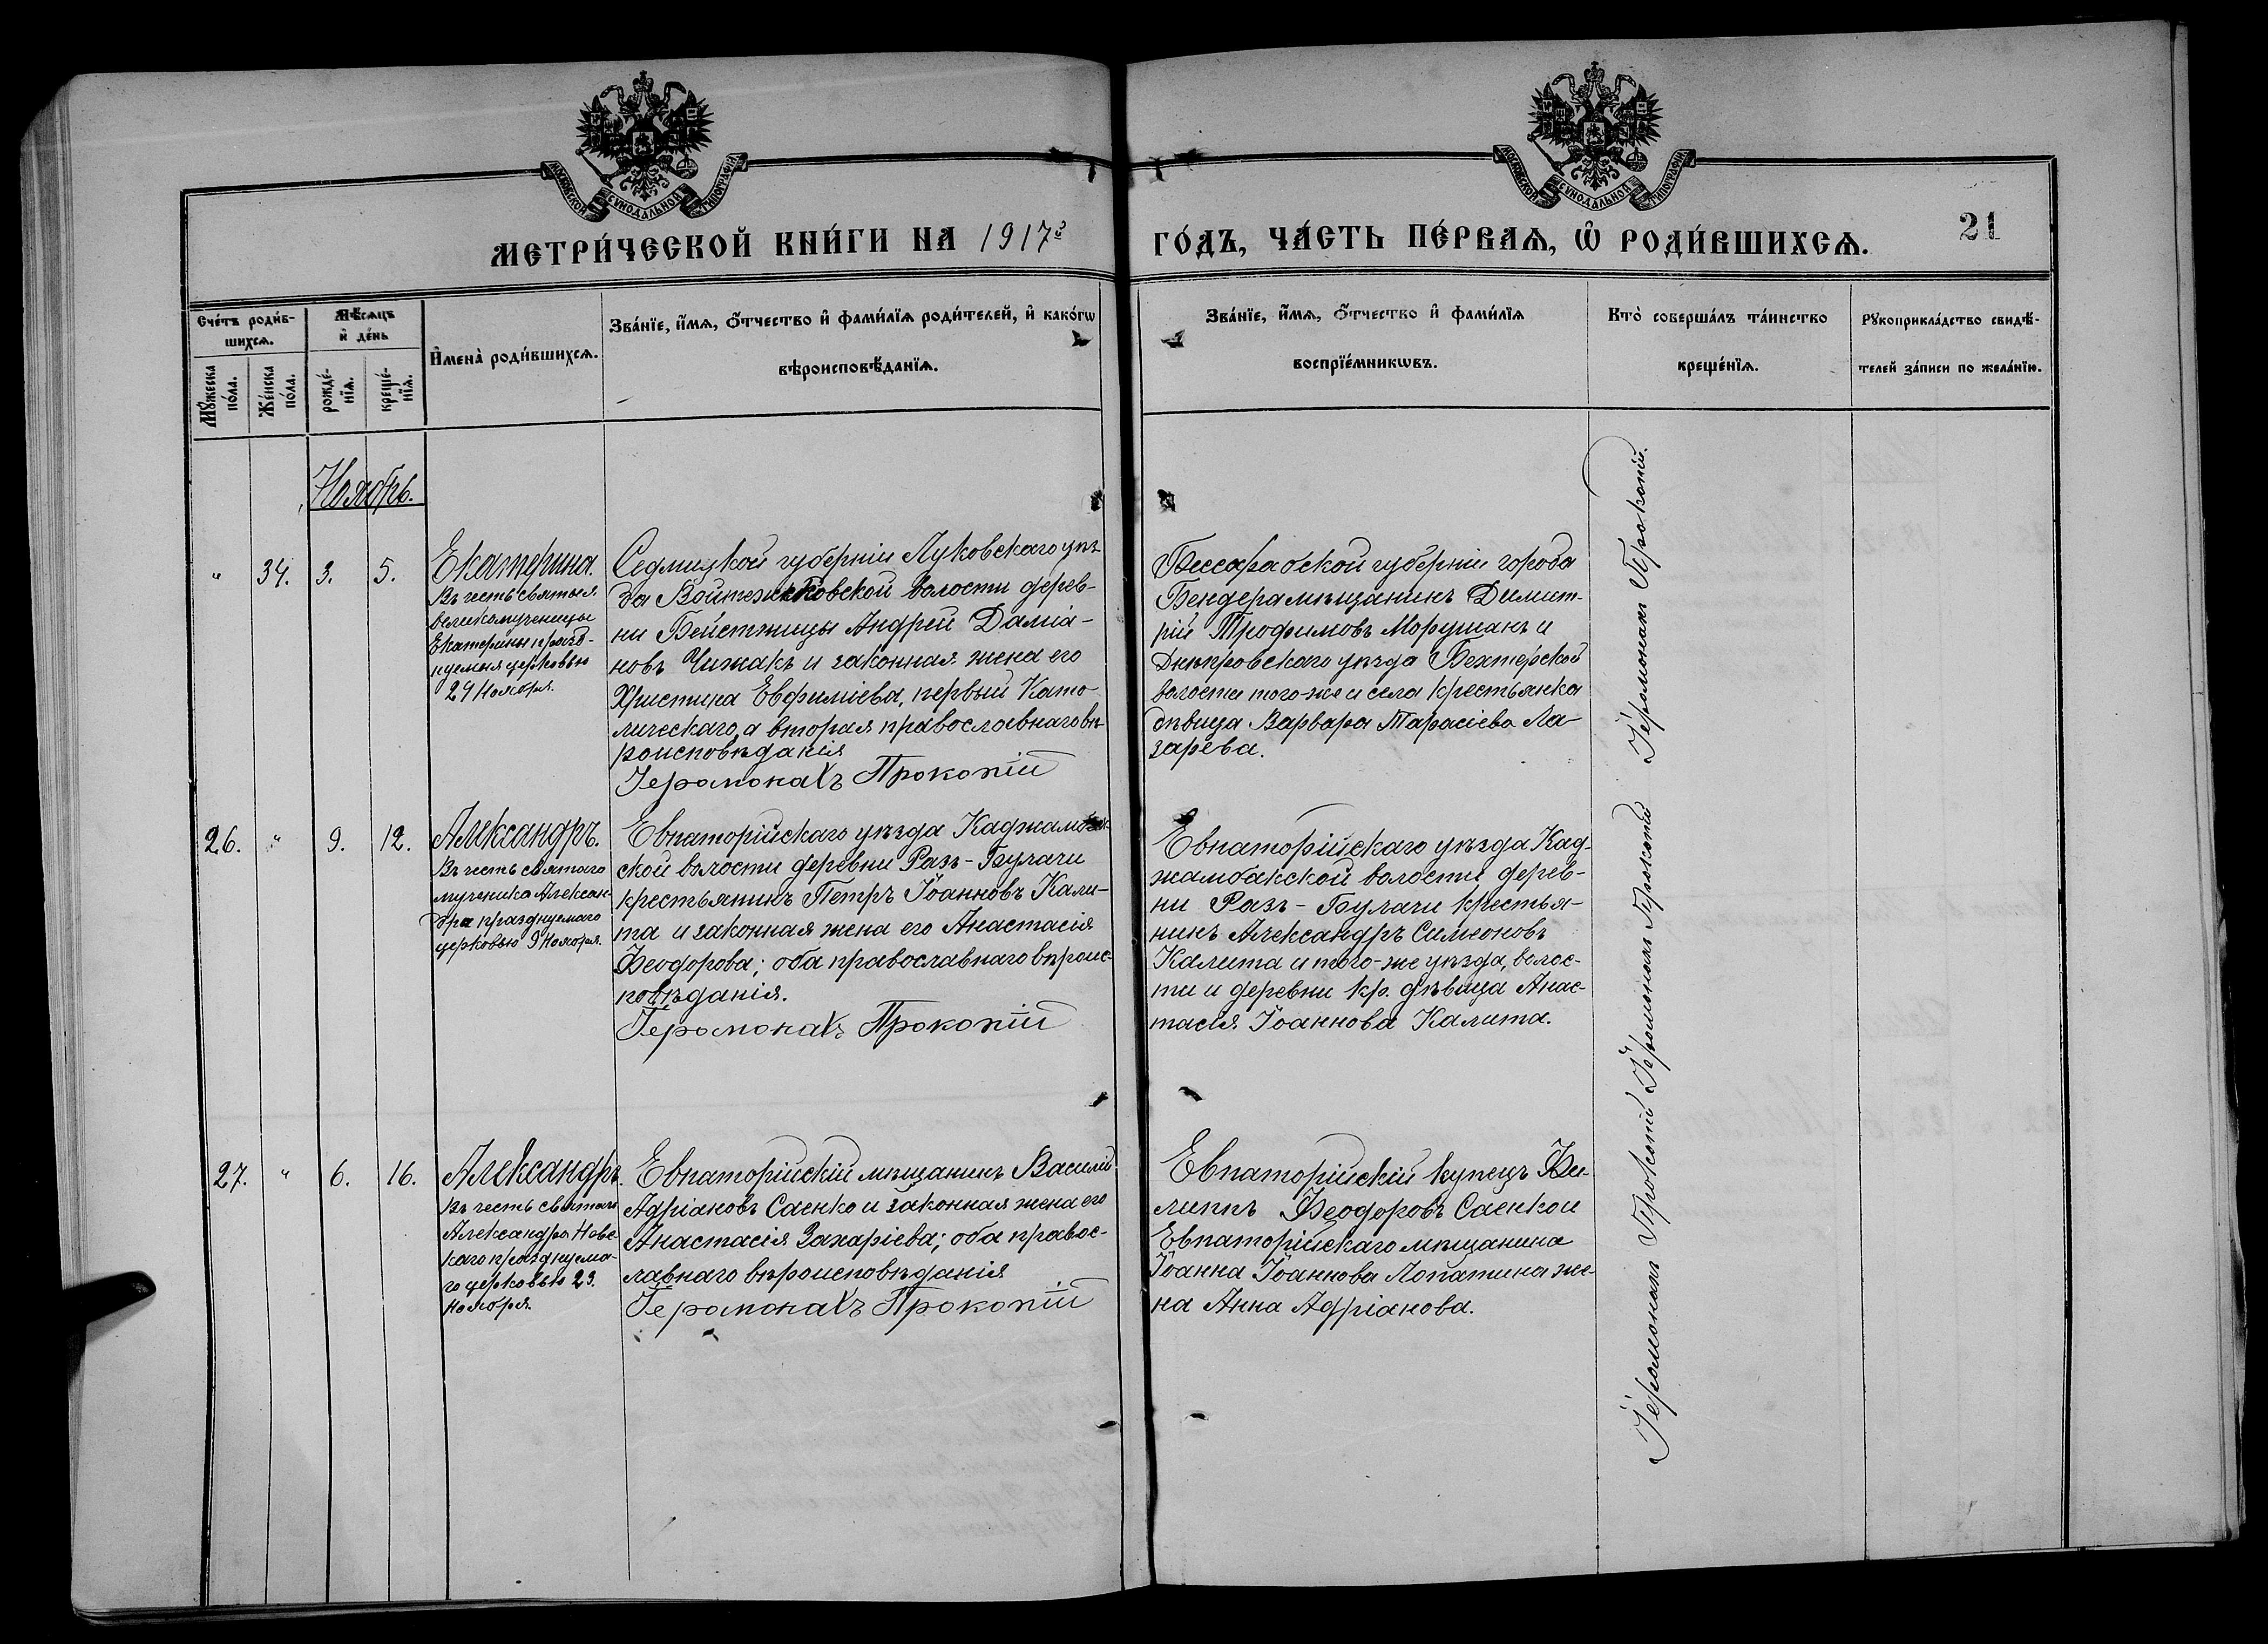 МОСКОВСКОЙ СУНОДАЛЬНОЙ ТИПОГРАФІИ
МОСКОВСКОЙ СУНОДАЛЬНОЙ ТИПОГРАФІИ
МЕТРИ́ЧЕСКОЙ КНИ́ГИ НА 1917й
ГО́ДЪ, ЧА́СТЬ ПЕ́РВАѦ, Ѡ РОДИ́ВШИХСѦ.
21
Сче́тъ роди́в-
шихсѧ.
Мꙋ́жеска по́ла.
Же́нска по́ла.
Мѣ́сѧцъ
и де́нь
рожде́-
нїѧ.
креще́-
нїѧ.
Имена̀ роди́вшихсѧ.
Зва́нїе, и́мѧ, ѻ́тчество и фами́лїѧ роди́телей, и како́гѡ
вѣроисповѣ́данїѧ.
Зва́нїе, и́мѧ, ѻ́тчество и фами́лїѧ
воспрїе́мникѡвъ.
Кто̀ соверша́лъ та́инство
креще́нїѧ.
Рꙋкоприкла́дство свидѣ́-
телей за́писи по жела́нїю.
Ноябрь.
"
34.
3.
5.
Екатерина.
Въ честь святыя
великомученицы
Екатерины празд-
нуемыя церковью
24 Ноября.
Седлицкой губерніи Луковскаго уѣз-
да Войтешковской волости дерев-
ни Бейстжицы Андрей Даміа-
новъ Чижакъ и законная жена его
Христина Евфиміева, первый Като-
лическаго, а вторая православнаго вѣ-
роисповѣданія
Іеромонахъ Прокопій
Бессарабской губерніи города
Бендера мѣщанинъ Димит-
рій Трофимовъ Морушанъ и
Днѣпровскаго уѣзда Бехтерской
волости того-же и села крестьянка
дѣвица Варвара Тарасіева Ла-
зарева.
Іеромонахъ Прокопій.
26.
"
9.
12.
Александръ.
Въ честь святаго
мученика Алексан-
дра празднуемаго
церковью 9 Ноября.
Евпаторійскаго уѣзда Каджамбак-
ской волости деревни Разъ-Булачи
крестьянинъ Петръ Іоанновъ Кали-
та и законная жена его Анастасія
Ѳеодорова; оба православнаго вѣроис-
повѣданія.
Іеромонахъ Прокопій
Евпаторійскаго уѣзда Кад-
жамбакской волости дерев-
ни Разъ-Булачи крестья-
нинъ Александръ Симеоновъ
Калита и того-же уѣзда, волос-
ти и деревни кр. дѣвица Анас-
тасія Іоаннова Калита.
Іеромонахъ Прокопій
27.
"
6.
16.
Александръ.
Въ честь святаго
Александра Невс-
каго празднуема-
го церковью 23.
Ноября.
Евпаторійскій мѣщанинъ Василій
Адріановъ Саенко и законная жена его
Анастасія Захаріева; оба правос-
лавнаго вѣроисповѣданія
Іеромонахъ Прокопій
Евпаторійскій купецъ Фи-
липпъ Ѳеодоровъ Саенко и
Евпаторійскаго мѣщанина
Іоанна Іоаннова Лопатина же-
на Анна Адріанова.
Іеромонахъ Прокопій